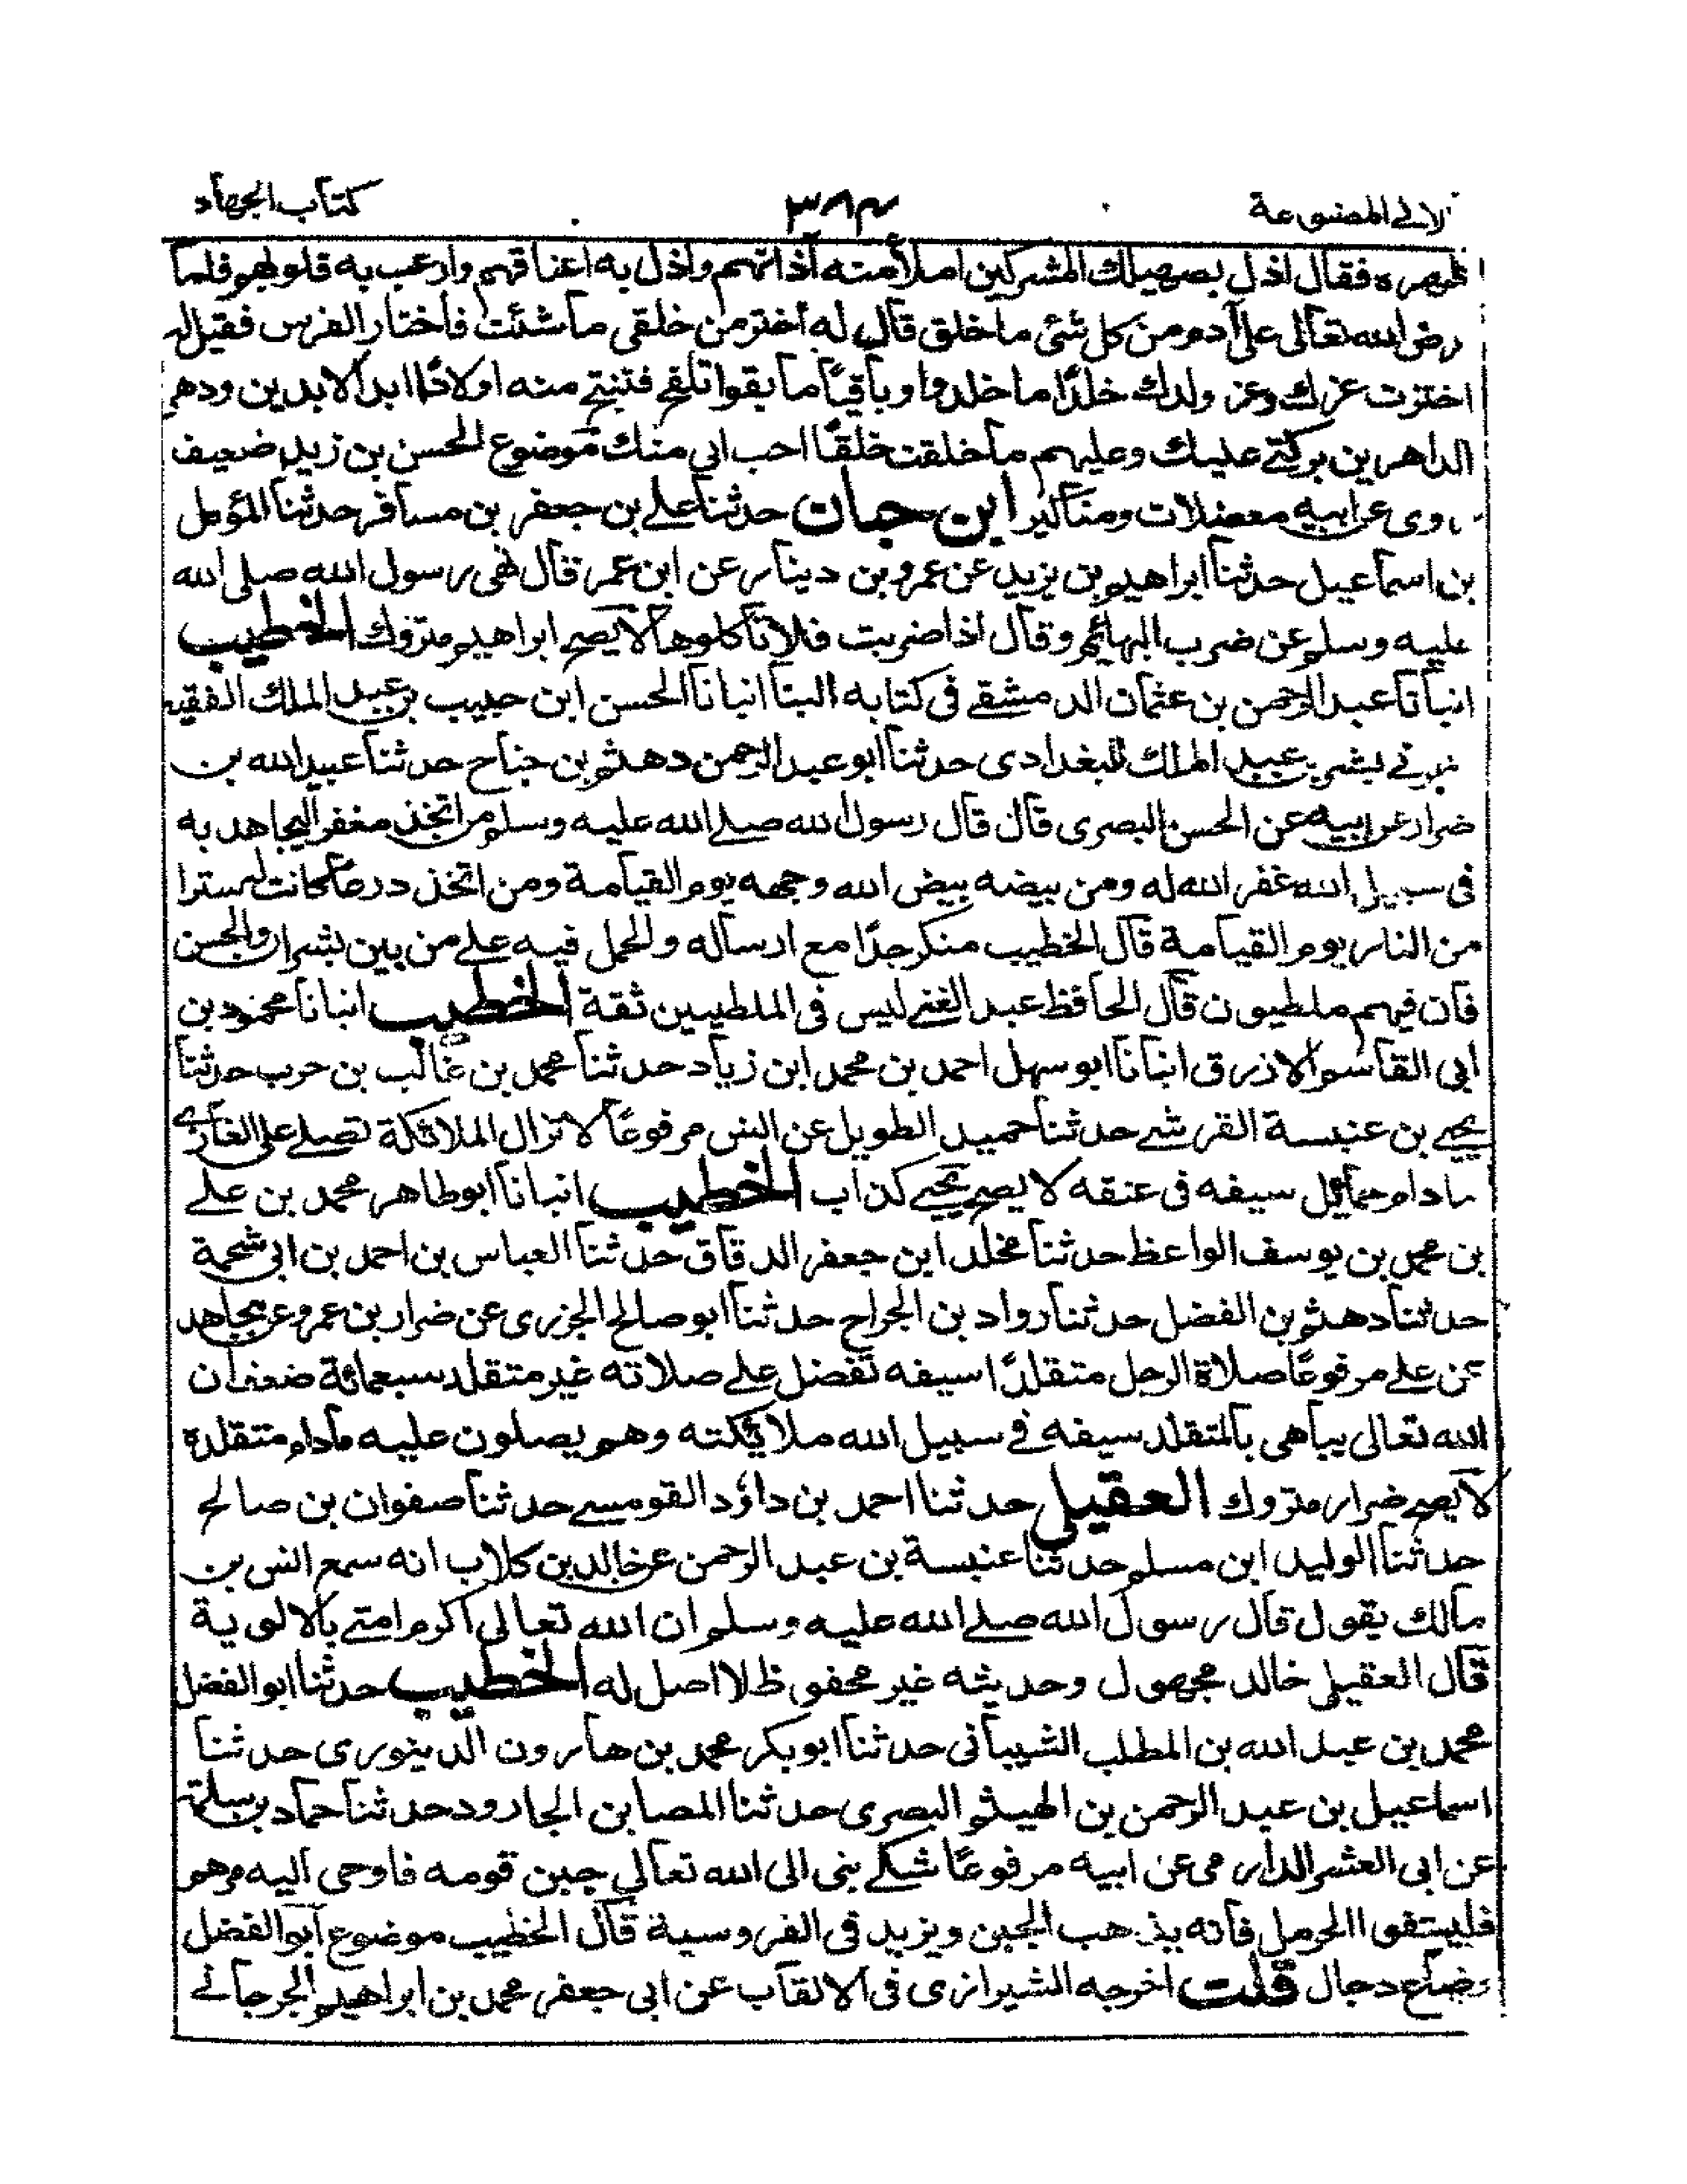 لالى المصنوعة ٣٨٤ كتاب الجهاد
ظهره فقال اذل بصهيلك المشركين املأ منه آذانهم واذل به اعناقهم وارعب به قلوبهم فلما
رض الله تعالى على آدم من كل شئ ما خلق قال له اختر من خلقى ما شئت فاختار الفرس فقيل له
اخترت عزك وعز ولدك خلدًا ما خلدوا وباقيًا ما بقوا تلقح فتنتج منه اولادًا ابد الابدين ودهر
الداهرين بركتي عليك وعليهم ما خلقت خلقًا احب الى منك موضوع الحسن بن زيد ضعيف
روى عن ابيه معضلات ومناكير ابن حبان حدثنا علے بن جعفر بن مسافر حدثنا المؤمل
بن اسماعيل حدثنا ابراهيم بن يزيد عن عمرو بن دينار عن ابن عمر قال نهى رسول الله صلى الله
عليه وسلم عن ضرب البهائم وقال اذا ضربت فلا تأكلوها لا يصح ابراهيم متروك الخطيب
انبأنا عبد الرحمن بن عثمان الدمشقے فى كتابه الينا انبانا الحسن ابن حبيب بن عبيد الملك الفقيه
بشر بن عبيد الملك البغدادى حدثنا ابو عبد الرحمن دهثم بن جناح حدثنا عبيد الله بن
ضرار عن ابيه عن الحسن البصرى قال قال رسول الله صلے الله عليه وسلم من اتخذ مغفر اليجاهد به
فى سبيل الله غفر الله له ومن بيضه بيض الله وجهه يوم القيامة ومن اتخذ درعًا كانت له سترا
من النار يوم القيامة قال الخطيب منكر جدًا مع ارساله والحمل فيه علے من بين بشران والحسن
فان فيهم ملطيون قال الحافظ عبد الغنے ليس فى الملطيين ثقة الخطيب انبانا محمود بن
ابى القاسم الازرق انبانا ابو سهل احمد بن محمد ابن زياد حدثنا محمد بن غالب بن حرب حدثنا
يحيے بن عنبسة القرشے حدثنا حميد الطويل عن انس مرفوعًا لا تزال الملائكة تصلے على الغازے
مادام حمائل سيفه فى عنقه لا يصح يحيے كذاب الخطيب انبانا ابو طاهر محمد بن علے
بن محمد بن يوسف الواعظ حدثنا مخلد ابن جعفر الدقاق حدثنا العباس بن احمد بن ابى شحمة
حدثنا دهثم بن الفضل حدثنا رواد بن الجراح حدثنا ابو صالح الجزرى عن ضرار بن عمرو عن مجاهد
عن علے مرفوعًا صلاة الرجل متقلدًا سيفه تفضل علے صلاته غير متقلد سبعمائة ضعف ان
الله تعالى يباهى بالمتقلد سيفه فے سبيل الله ملائكته وهم يصلون عليه مادام متقلده
لا يصح ضرار متروك العقيلى حدثنا احمد بن داؤد القومسے حدثنا صفوان بن صالح
حدثنا الوليد ابن مسلم حدثنا عنبسة بن عبد الرحمن عن خالد بن كلاب انه سمع انس بن
مالك يقول قال رسول الله صلے الله عليه وسلم ان الله تعالى اكرم امتے بالالوية
قال العقيلى خالد مجهول وحديثه غير محفوظ لا اصل له الخطيب حدثنا ابو الفضل
محمد بن عبد الله بن المطلب الشيبانى حدثنا ابو بكر محمد بن هارون الدينورى حدثنا
اسماعيل بن عبد الرحمن بن الهيثم البصرى حدثنا المصا بن الجارود حدثنا حماد بن سلمة
عن ابى العشر الدارمى عن ابيه مرفوعًا شكے نبى الى الله تعالى جبن قومه فاوحى اليه مرهم
فليستفوا الحرمل فانه يذهب الجبن ويزيد فى الفروسية قال الخطيب موضوع ابو الفضل
وضاع دجال قلت اخرجه الشيرازى فى الالقاب عن ابى جعفر محمد بن ابراهيم الجرجانے